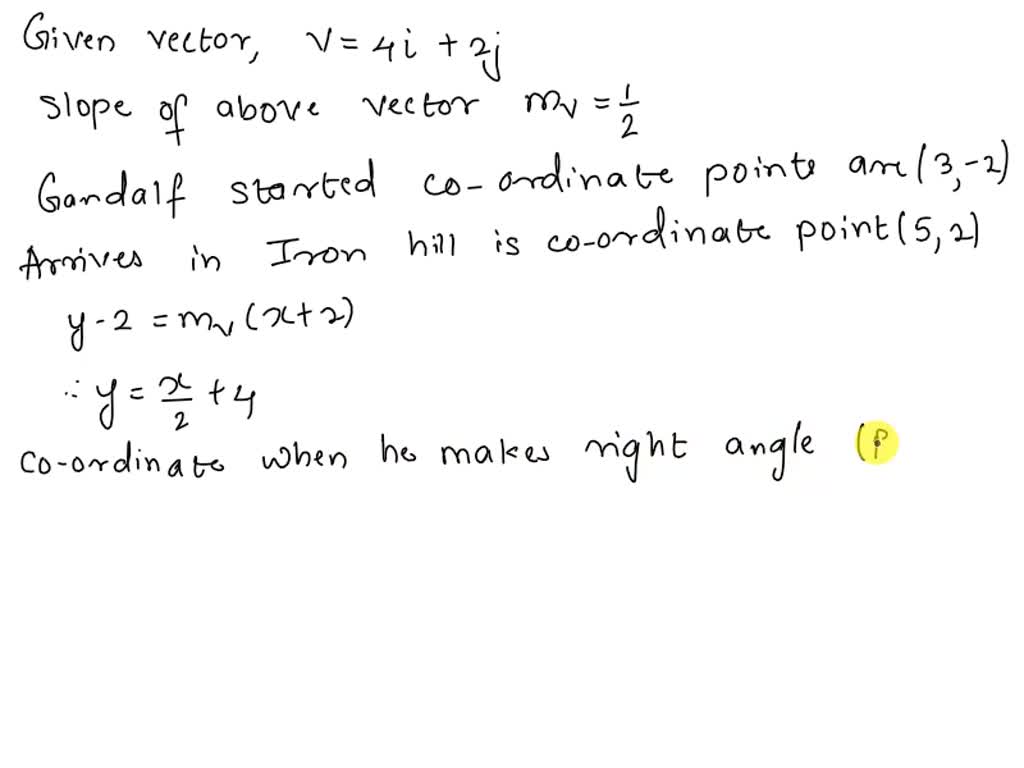 Given vector, V = 4i + 2j
Slope of above vector mv = 1/2
Gandalf started co-ordinate points are (3,-2)
Arrives in Iron hill is co-ordinate point (5,2)
y-2 = mv (x+2)
∴ y = x/2 + 4
co-ordinate when he makes right angle (P